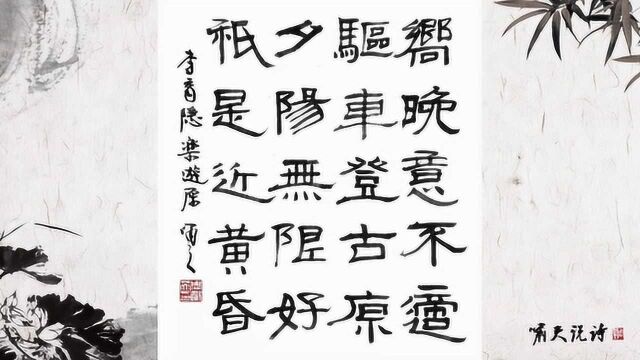 嚮晚意不適
驅車登古原
夕陽無限好
祇是近黃昏
李商隐樂遊原
啸天说诗